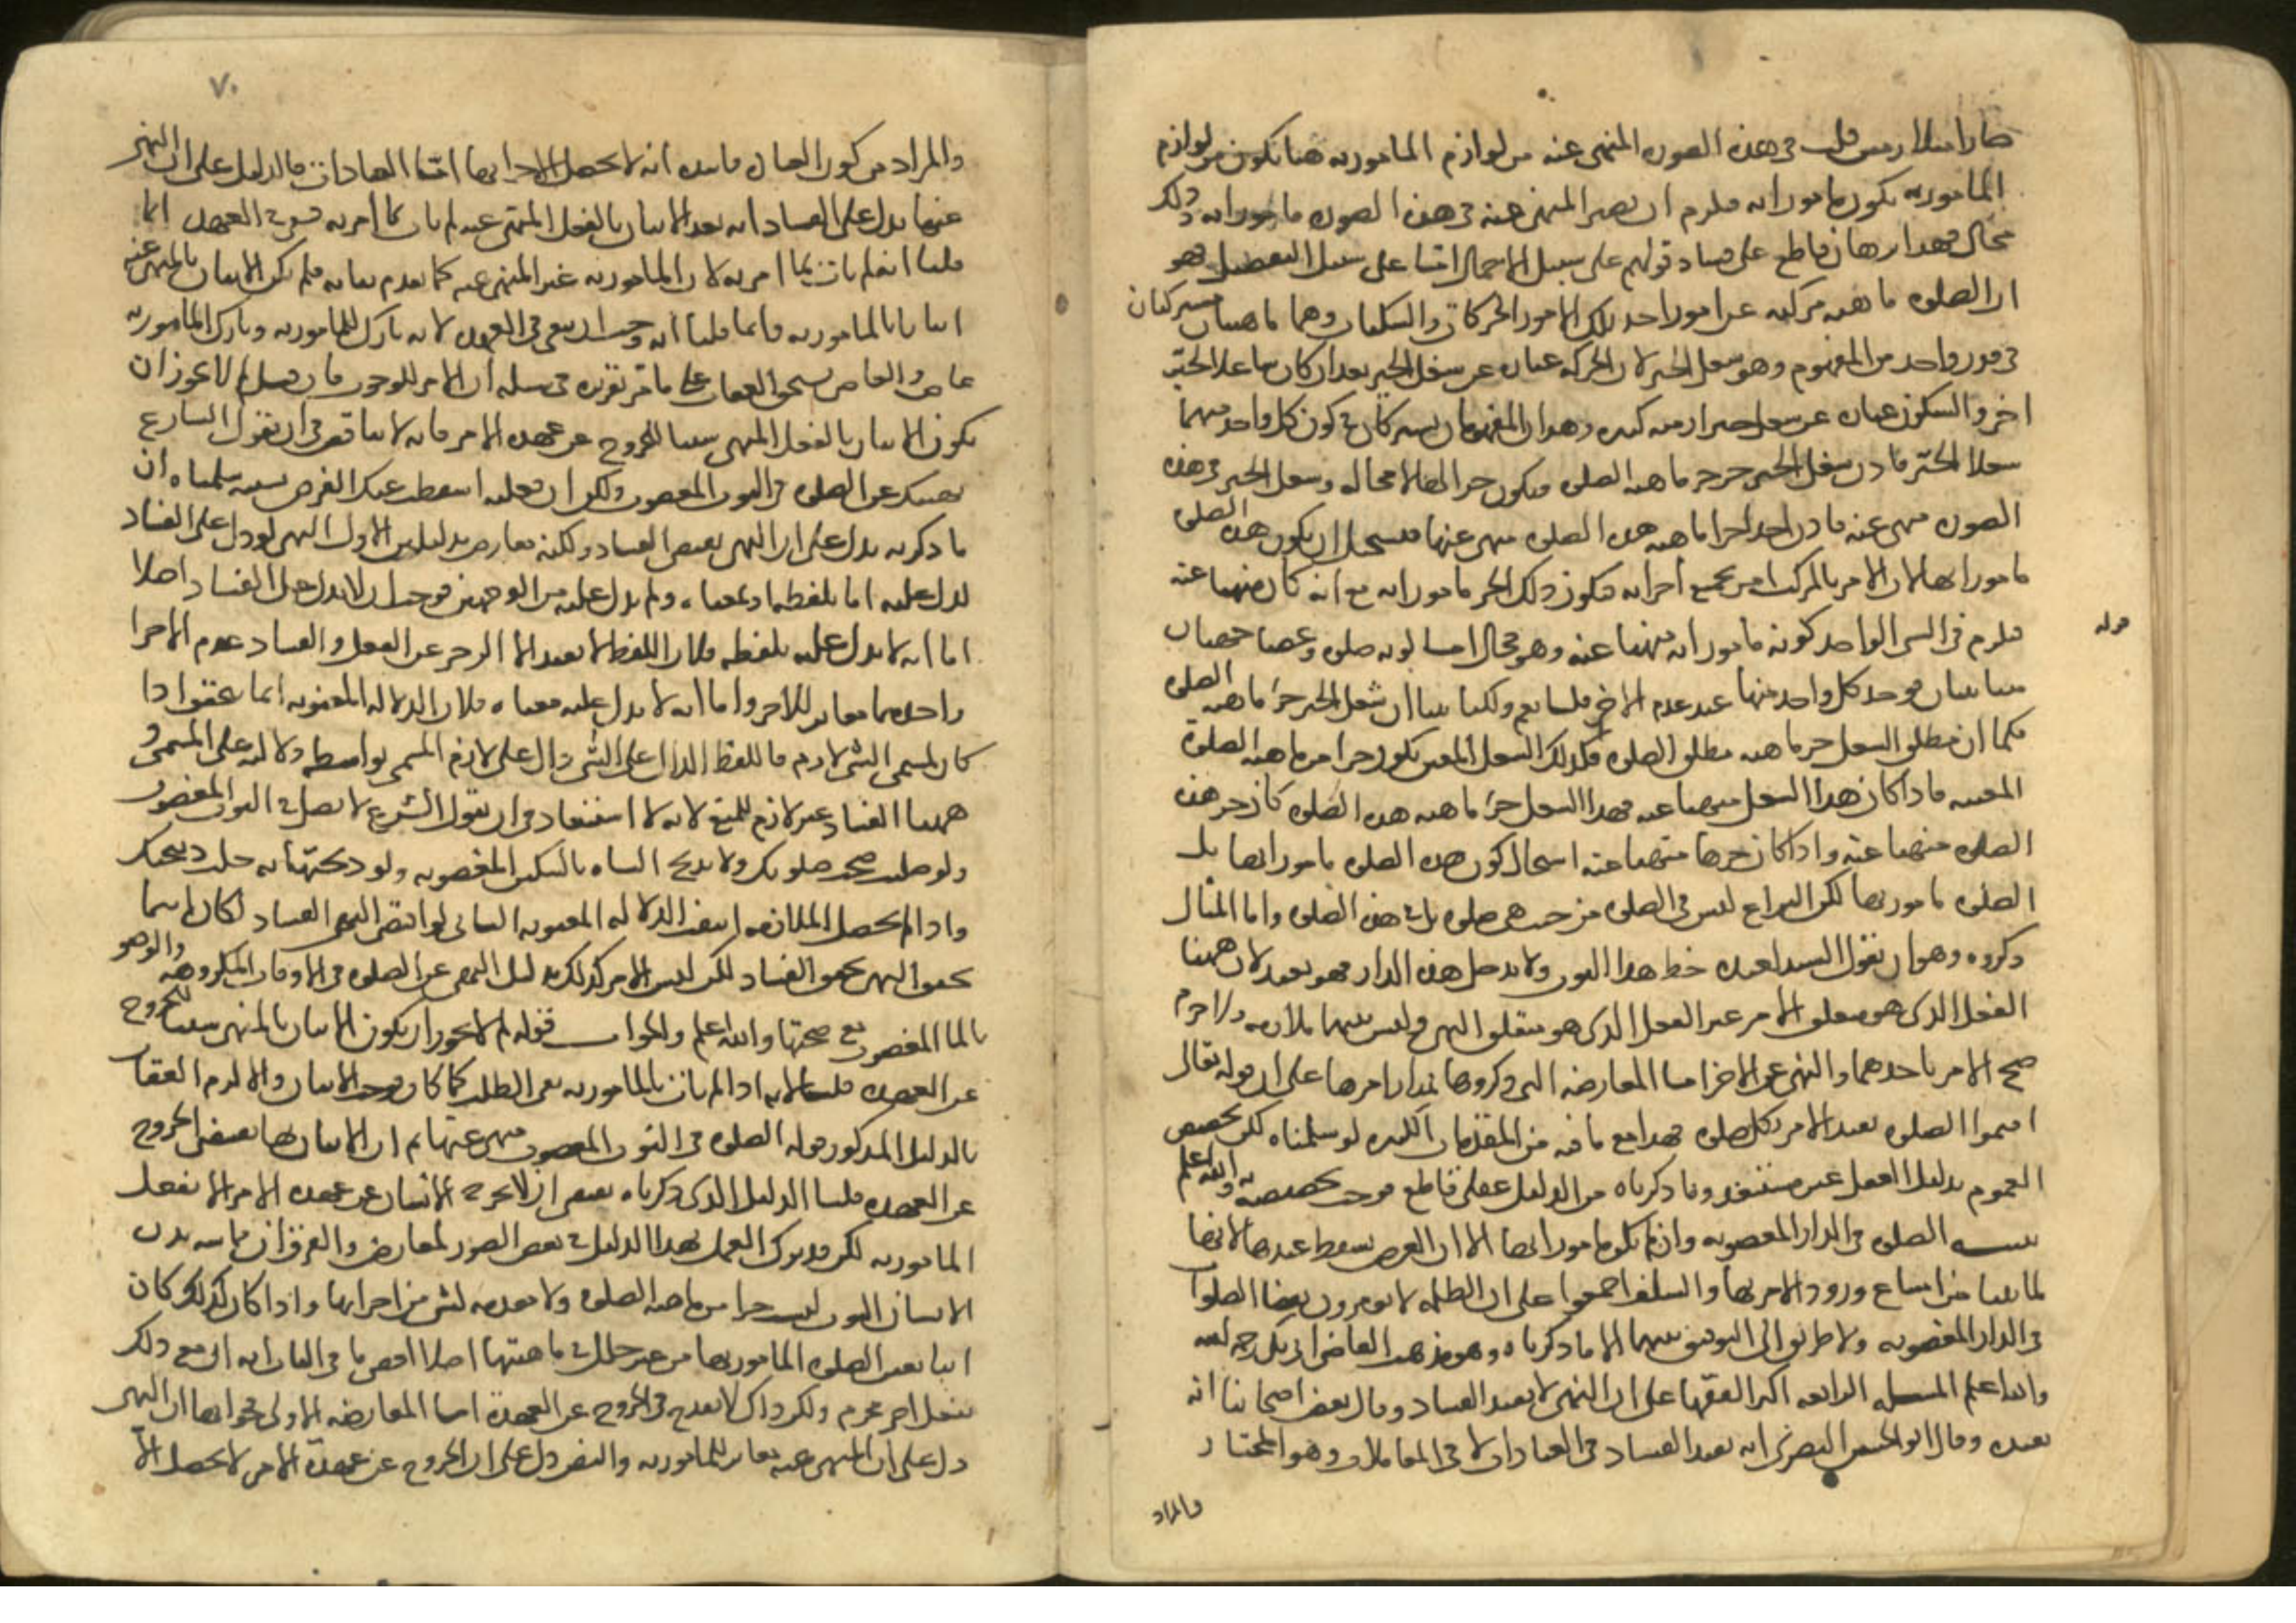 صارا متلازمين قلت في هذه الصورة المنهي عنه من لوازم المامور به هنا تكون من لوازم
المامور به يكون مامورا به فيلزم ان يصير المنهي عنه في هذه الصورة مامورا به وذلك
محال فهذا برهان قاطع على فساد قولهم على سبيل الاجمال اما على سبيل التفصيل فهو
ان الصلوة ماهية مركبة عن امور احد تلك الامور الحركات والسكنات وهما ماهيتان مشتركتان
في قدر واحد من المفهوم وهو شغل الحيز لان الحركة عبارة عن شغل الحيز بعد ان كان شاغلا لحيز
اخر والسكون عبارة عن شغل حيز ازمنة كثيرة وهذان المفهومان يشتركان في كون كل واحد منهما
شغلا لحيز فاذن شغل الحيز جزء جزء ماهية الصلوة فيكون جزا لها لا محالة وشغل الحيز في هذه
الصورة منهي عنه فاذن احد اجزا ماهية هذه الصلوة منهي عنها فيستحيل ان يكون هذه الصلوة
مامورا بها لان الامر بالمركب امر بجميع اجزائه فيكون ذلك الجزء مامورا به مع انه كان منهيا عنه
فيلزم في الشي الواحد كونه مامورا به منهيا عنه وهو محال اما قوله كونه صلوة وغصبا جهتان
متباينتان يوجد كل واحد منهما عند عدم الاخر قلنا نعم ولكنا بينا ان شغل الحيز جزء ماهية الصلوة
فكما ان مطلق الشغل جزء ماهية مطلق الصلوة فكذلك الشغل المعين يكون جزا من ماهية الصلوة
المعينة فاذا كان هذا الشغل منهيا عنه فهذا الشغل جزء ماهية هذه الصلوة كان جزء هذه
الصلوة منهيا عنه واذا كان جزوها منهيا عنه استحال كون هذه الصلوة مامورا بها بل
الصلوة مامور بها لكن النزاع ليس في الصلوة من حيث هي صلوة بل في هذه الصلوة واما المثال
ذكروه وهو ان يقول السيد لعبده خط هذا الثوب ولا تدخل هذه الدار فهو بعيد لان ههنا
الفعل الذي هو متعلق الامر غير الفعل الذي هو متعلق النهي وليس بينهما ملازمة ولا جرم
صح الامر باحدهما والنهي عن الاخر اما المعارضة التي ذكروها فمدار امرها على ان قوله تعالى
اقيموا الصلوة يفيد الامر بكل صلوة فهذا مع ما فيه من المقدمات الكثيرة لو سلمناه لكن تخصيص
العموم بدليل العقل غير مستبعد وما ذكرناه من الدليل عقلي قاطع فوجب تخصيصه به والله اعلم
تنبيه الصلوة في الدار المغصوبة وان لم تكن مامورا بها الا ان الفرض يسقط عندها لا بها
لما بينا من امتناع ورود الامر بها والسلف اجمعوا على ان الظلمة لا يومرون بقضا الصلوات
في الدار المغصوبة ولا طريق الى التوفيق بينهما الا ما ذكرناه وهو مذهب القاضي ابي بكر رحمه الله
والله اعلم المسئلة الرابعة اكثر الفقها على ان النهي لا يفيد الفساد وقال بعض اصحابنا انه
يفيده وقال ابو الحسين البصري انه يفيد الفساد في العبادات لا في المعاملات وهو المختار
والمراد
قوله
٧٠
والمراد من كون العبادة فاسدة انه لا يحصل الاجزا بها اما العبادات فالدليل على ان النهي
عنها يدل على الفساد انه بعد الاتيان بالفعل المنهي عنه لم يات بما امر به فبقي في العهدة انما
قلنا انه لم يات بما امر به لان المامور به غير المنهي عنه كما تقدم بيانه فلم يكن الاتيان بالمنهي عنه
اتيانا بالمامور به وانما قلنا انه وجب ان يبقى في العهدة لانه تارك للمامور به وتارك المامور به
عاص والعاصي يستحق العقاب على ما مر تقريره في مسئلة ان الامر للوجوب فان قيل لم لا يجوز ان
يكون الاتيان بالفعل المنهي سببا للخروج عن عهدة الامر فانه لا تناقض في ان يقول الشارع
نهيتك عن الصلوة في الثوب المغصوب ولكن ان فعلته اسقطت عنك الفرض بسببه سلمناه ان
ما ذكرته يدل على ان النهي يقتضي الفساد ولكنه معارض بدليلين الاول النهي لو دل على الفساد
لدل عليه اما بلفظه او بمعناه ولم يدل عليه من الوجهين فوجب ان لا يدل على الفساد اصلا
اما انه لا يدل عليه بلفظه فلان اللفظ لا يفيد الا الزجر عن الفعل والفساد عدم الاجزا
واحدهما مغاير للاخر واما انه لا يدل عليه بمعناه فلان الدلالة المعنوية انما تتحقق اذا
كان لمسمى الشي لازم فاللفظ الدال على الشي دال على لازم المسمى بواسطة دلالته على المسمى و
ههنا الفساد غير لازم للمنع لانه لا استبعاد في ان يقول الشرع لا تصل في الثوب المغصوب
ولو صليت صحت صلوتك ولا تذبح الشاة بالسكين المغصوبة ولو ذبحتها به حلت ذبيحتك
واذا لم يحصل الملازمة انتفت الدلالة المعنوية الثاني لو اقتضى النهي الفساد لكان اينما
تحقق النهي تحقق الفساد لكن ليس الامر كذلك بدليل النهي عن الصلوة في الاوقات المكروهة والوضو
بالما المغصوب مع صحتها والله اعلم والجواب قوله لم لا يجوز ان يكون الاتيان بالمنهي سببا للخروج
عن العهدة قلنا لانه اذا لم يات بالمامور به بقي الطلب كما كان فوجب الاتيان والا لزم العقاب
بالدليل المذكور قوله الصلوة في الثوب المغصوب منهي عنها ثم ان الاتيان بها يقتضي الخروج
عن العهدة قلنا الدليل الذي ذكرناه يقتضي ان لا يخرج الانسان عن عهدة الامر الا بفعل
المامور به لكن قد يترك العمل بهذا الدليل في بعض الصور لمعارض والفرق ان مماسة بدن
الانسان الثوب ليست جزا من ماهية الصلوة ولا مقدمة لشي من اجزايها واذا كان كذلك كان
اتيا بعين الصلوة المامور بها من غير خلل في ماهيتها اصلا اقصى ما في الباب انه اتى مع ذلك
بفعل اخر محرم ولكن ذاك لا يقدح في الخروج عن العهدة اما المعارضة الاولى فجوابها ان النهي
دل على ان المنهي عنه مغاير للمامور به والنص دل على ان الخروج عن عهدة الامر لا يحصل الا